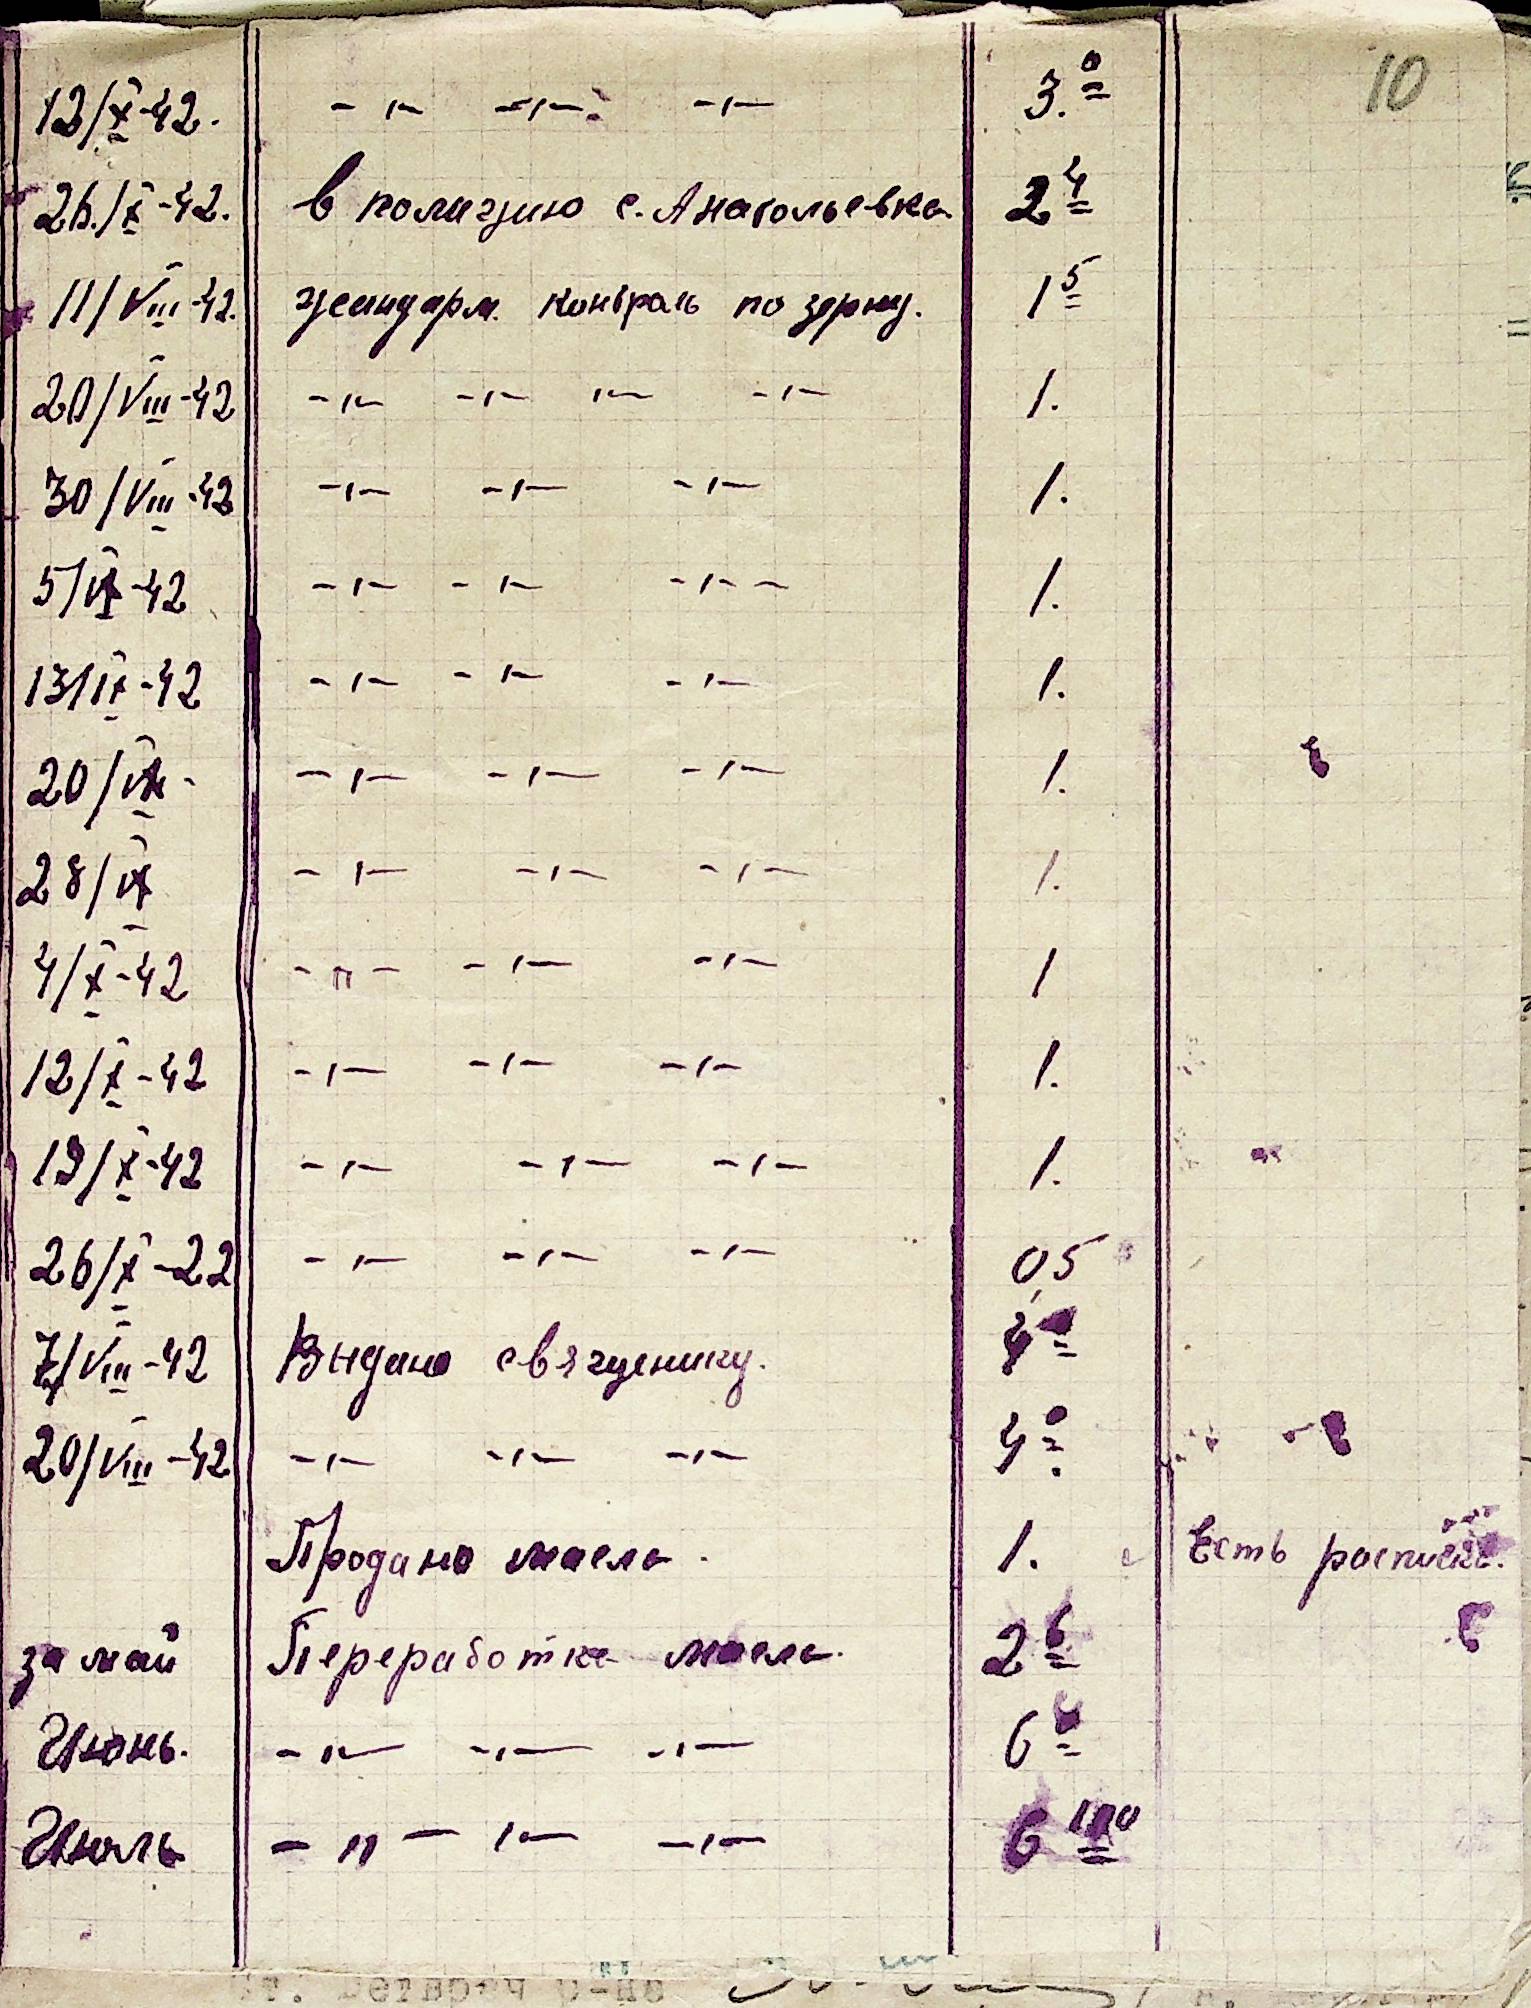 10
12/X-42. -"- -"- -"- 3.0
26./X-42. В полицию с. Анатольевка 2 4
11/VIII-42. жандарм. контроль по зерну. 1 5
20/VIII-42 -"- -"- -"- -"- 1.
30/VIII-42 -"- -"- -"- 1.
5/IX-42 -"- -"- -"- 1.
13/IX-42 -"- -"- -"- 1.
20/IX- -"- -"- -"- 1.
28/IX -"- -"- -"- 1.
4/X-42 -"- -"- -"- 1
12/X-42 -"- -"- -"- 1.
19/X-42 -"- -"- -"- 1.
26/X-22 -"- -"- -"- 0,5
7/VIII-42 Выдано священику. 4
20/VIII-42 -"- -"- -"- 4 0
Продано масла. 1. Есть росписка.
за май Переработка масла. 2 6
Июнь. -"- -"- -"- 6
Июль -"- -"- -"- 6 100